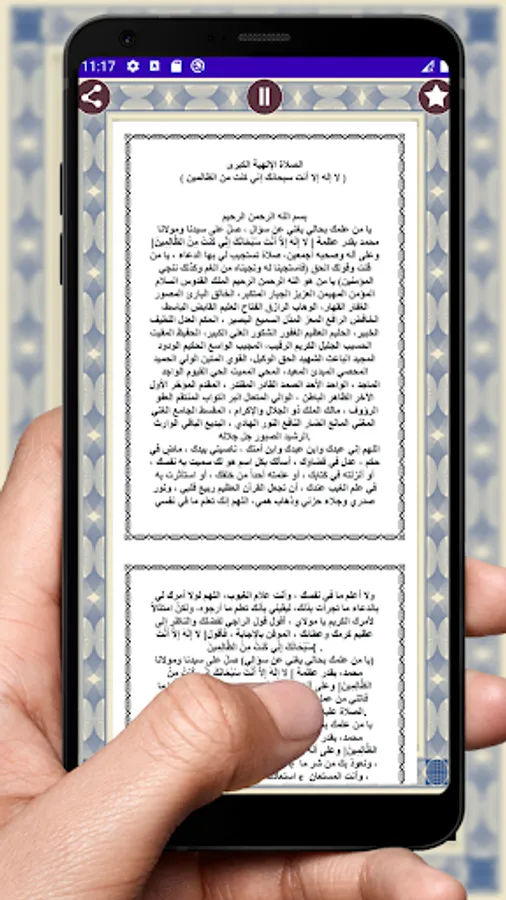 11:17
الصلاة الإلهية الكبرى
( لا إله إلا أنت سبحانك إني كنت من الظالمين )
بسم الله الرحمن الرحيم
يا من علمك بحالي يغني عن سؤالي ، صل على سيدنا ومولانا
محمد بقدر عظمة [ لا إله إلا أنت سبحانك إني كنت من الظالمين]
وعلى آله وصحبه أجمعين، صلاة تستجيب لي بها الدعاء ، يا من
قلت وقولك الحق (فاستجبنا له ونجيناه من الغم وكذلك ننجي
المؤمنين) يا من هو الله الرحمن الرحيم الملك القدوس السلام
المؤمن المهيمن العزيز الجبار المتكبر، الخالق البارئ المصور
الغفار القهار، الوهاب الرزاق الفتاح العليم القابض الباسط،
الخافض الرافع المعز المذل السميع البصير ، الحكم العدل اللطيف
الخبير، الحليم العظيم الغفور الشكور العلي الكبير، الحفيظ المقيت
الحسيب الجليل الكريم الرقيب، المجيب الواسع الحكيم الودود
المجيد الباعث الشهيد الحق الوكيل، القوي المتين الولي الحميد
المحصي المبدئ المعيد، المحي المميت الحي القيوم الواجد
الماجد ، الواحد الأحد الصمد القادر المقتدر ، المقدم المؤخر الأول
الآخر الظاهر الباطن ، الوالي المتعال البر التواب المنتقم العفو
الرؤوف ، مالك الملك ذو الجلال والإكرام ، المقسط الجامع الغني
المغني المانع الضار النافع النور الهادي ، البديع الباقي الوارث
الرشيد الصبور جل جلاله.
اللهم إني عبدك وابن عبدك وابن أمتك ، ناصيتي بيدك ، ماض في
حكمك ، عدل في قضاؤك ، أسألك بكل اسم هو لك سميت به نفسك ،
أو أنزلته في كتابك ، أو علمته أحداً من خلقك ، أو استأثرت به
في علم الغيب عندك ، أن تجعل القرآن العظيم ربيع قلبي ، ونور
صدري وجلاء حزني وذهاب همي، اللهم إنك تعلم ما في نفسي
ولا أعلم ما في نفسك ، وأنت علام الغيوب، اللهم لولا أمرك لي
بالدعاء ما تجرأت بذلك، ليقيني بأنك تعلم ما أرجوه، ولكن امتثالاً
لأمرك الكريم يا مولاي ، أقول قول الراجي لفضلك والناظر إلى
عظيم كرمك وعطائك ، الموقن بالإجابة ، فأقول[ لا إله إلا أنت
سبحانك إني كنت من الظالمين] .
(يا من علمك بحالي يغني عن سؤالي) صل على سيدنا ومولانا
محمد، بقدر عظمة [ لا إله إلا أنت
الظالمين] وعلى
الصلاة
يا من علمك
محمد، بقدر
الظالمين] وعلى
، ونعوذ بك من شر ما
، وأنت المستعان